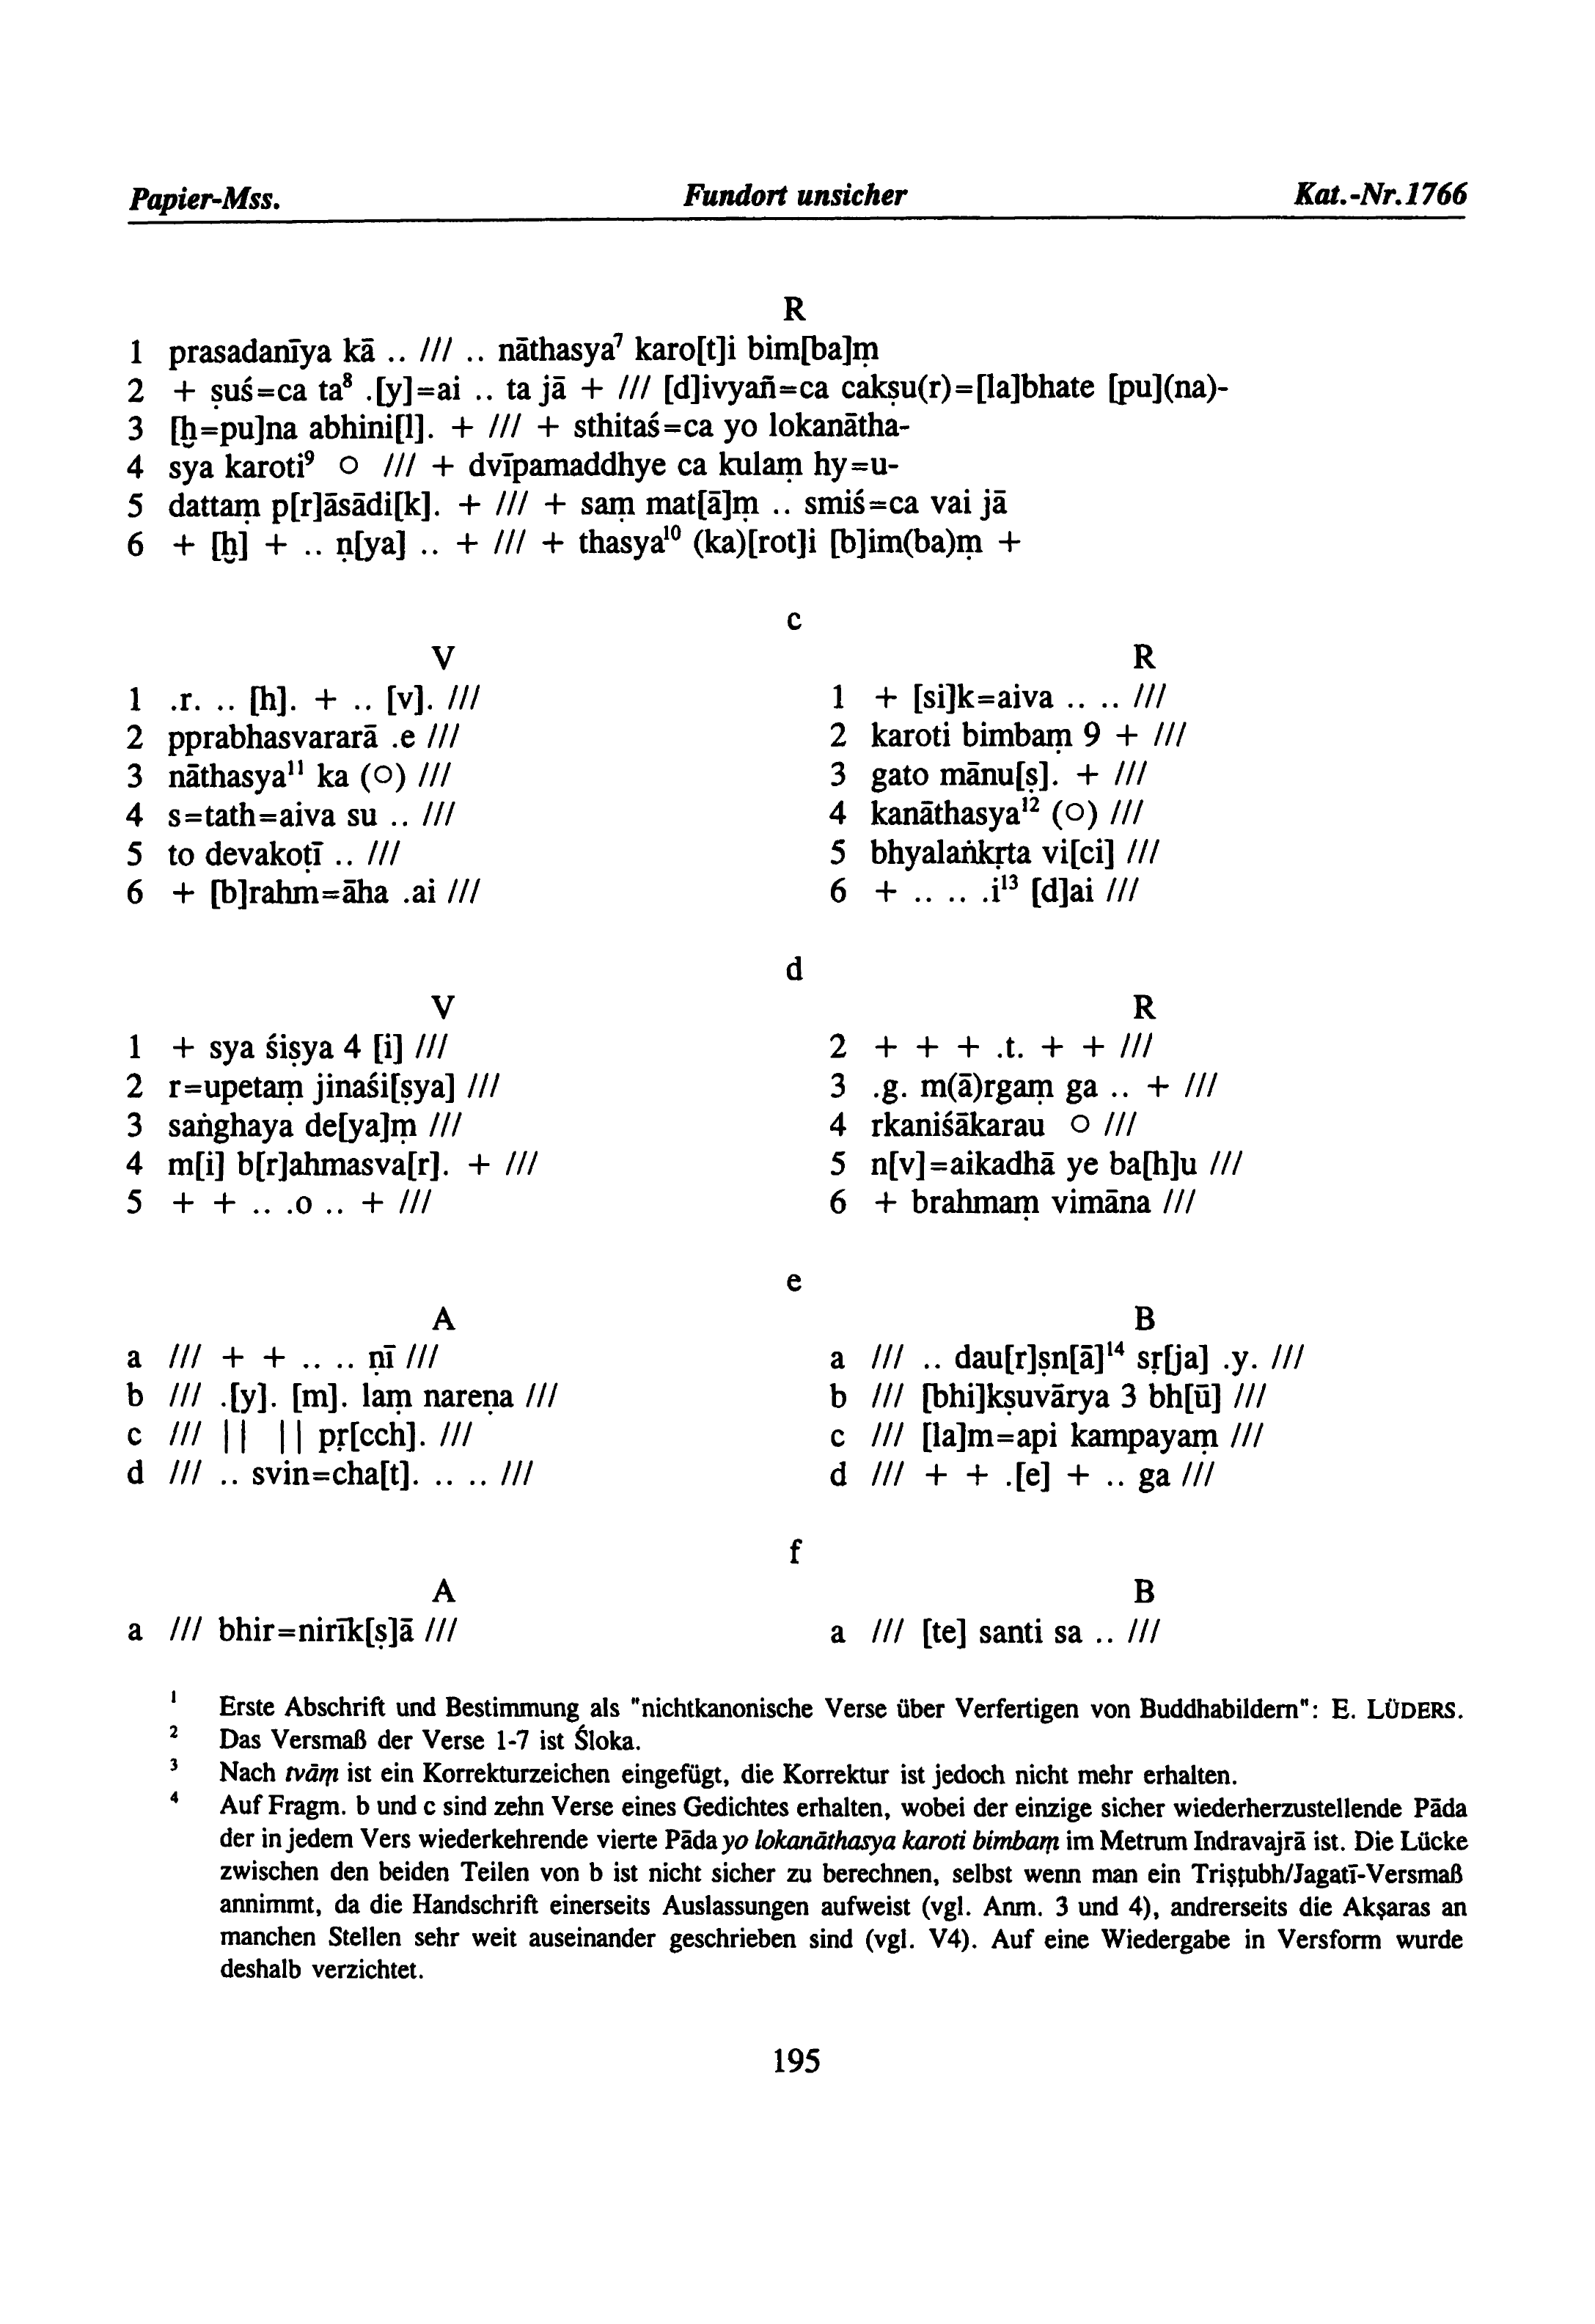 Papier-Mss. Fundort unsicher Kat.-Nr.1766
R
1 prasadanīya kā .. /// .. nāthasya⁷ karo[t]i bim[ba]ṃ
2 + ṣuś=ca ta⁸ .[y]=ai .. ta jā + /// [d]ivyañ=ca cakṣu(r)=[la]bhate [pu](na)-
3 [ẖ=pu]na abhini[l]. + /// + sthitaś=ca yo lokanātha-
4 sya karoti⁹ ○ /// + dvīpamaddhye ca kulaṃ hy=u-
5 dattaṃ p[r]āsādi[k]. + /// + saṃ mat[ā]ṃ .. smiś=ca vai jā
6 + [ẖ] + .. ṇ[ya] .. + /// + thasya¹⁰ (ka)[rot]i [b]im(ba)ṃ +
c
V
1 .r. .. [h]. + .. [v]. ///
2 pprabhasvararā .e ///
3 nāthasya¹¹ ka (○) ///
4 s=tath=aiva su .. ///
5 to devakoṭī .. ///
6 + [b]rahm=āha .ai ///
R
1 + [si]k=aiva .. .. ///
2 karoti bimbaṃ 9 + ///
3 gato mānu[ṣ]. + ///
4 kanāthasya¹² (○) ///
5 bhyalaṅkṛta vi[ci] ///
6 + .. .. .i¹³ [d]ai ///
d
V
1 + sya śiṣya 4 [i] ///
2 r=upetaṃ jinaśi[ṣya] ///
3 saṅghaya de[ya]ṃ ///
4 m[i] b[r]ahmasva[r]. + ///
5 + + .. .o .. + ///
R
2 + + + .t. + + ///
3 .g. m(ā)rgaṃ ga .. + ///
4 rkaniśākarau ○ ///
5 n[v]=aikadhā ye ba[h]u ///
6 + brahmaṃ vimāna ///
e
A
a /// + + .. .. ṇī ///
b /// .[y]. [m]. laṃ nareṇa ///
c /// || || pṛ[cch]. ///
d /// .. svin=cha[t]. .. .. ///
B
a /// .. dau[r]ṣn[ā]¹⁴ sṛ[ja] .y. ///
b /// [bhi]kṣuvārya 3 bh[ū] ///
c /// [la]m=api kampayaṃ ///
d /// + + .[e] + .. ga ///
f
A
a /// bhir=nirīk[ṣ]ā ///
B
a /// [te] santi sa .. ///
¹ Erste Abschrift und Bestimmung als "nichtkanonische Verse über Verfertigen von Buddhabildern": E. LÜDERS.
² Das Versmaß der Verse 1-7 ist Śloka.
³ Nach tvāṃ ist ein Korrekturzeichen eingefügt, die Korrektur ist jedoch nicht mehr erhalten.
⁴ Auf Fragm. b und c sind zehn Verse eines Gedichtes erhalten, wobei der einzige sicher wiederherzustellende Pāda
der in jedem Vers wiederkehrende vierte Pāda yo lokanāthasya karoti bimbaṃ im Metrum Indravajrā ist. Die Lücke
zwischen den beiden Teilen von b ist nicht sicher zu berechnen, selbst wenn man ein Triṣṭubh/Jagatī-Versmaß
annimmt, da die Handschrift einerseits Auslassungen aufweist (vgl. Anm. 3 und 4), andrerseits die Akṣaras an
manchen Stellen sehr weit auseinander geschrieben sind (vgl. V4). Auf eine Wiedergabe in Versform wurde
deshalb verzichtet.
195